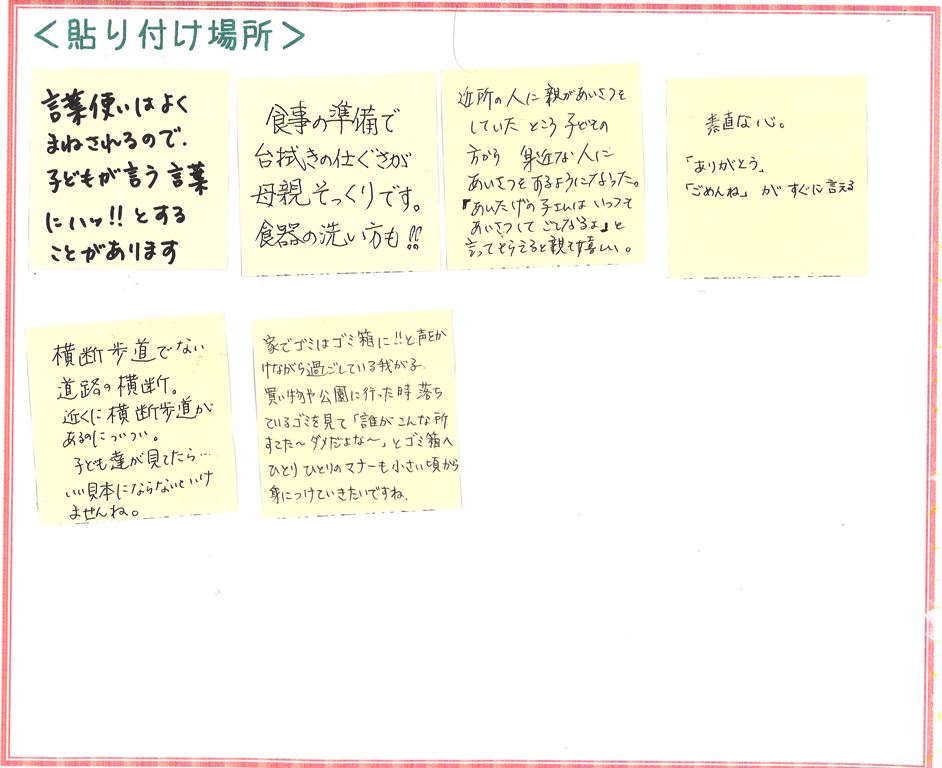 ＜貼り付け場所＞
言葉使いはよく
まねされるので、
子どもが言う言葉
にハッ!!とする
ことがあります
食事の準備で
台拭きの仕ぐさが
母親そっくりです。
食器の洗い方も!!
近所の人に親があいさつを
していたところ子どもの
方から身近な人に
あいさつをするようになった。
の子
あいさつして
言ってもらえると親も嬉しい。
素直な心。
「ありがとう」
「ごめんね」がすぐに言える
横断歩道でない
道路の横断。
近くに横断歩道が
あるのについつい。
子ども達が見てたら…
いい見本にならないといけ
ませんね。
家でゴミはゴミ箱に!!と声をか
けながら過ごしている我が子。
買い物や公園に行った時落ち
ているゴミを見て「誰がこんな所
すてた～ダメだよな～」とゴミ箱へ
ひとりひとりのマナーも小さい頃から
身につけていきたいですね。